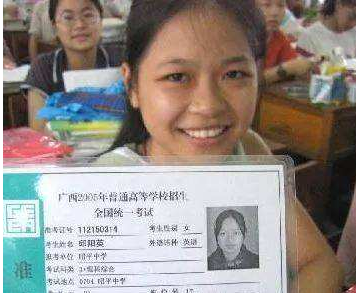 广西2005年普通高等学校招生
全国统一考试
准考证号 112150314 考生性别 女
考生姓名 邱阳英 外语语种 英语
报考单位 昭平中学
考试科类 3+理科综合
考试地点 0704 昭平中学
准